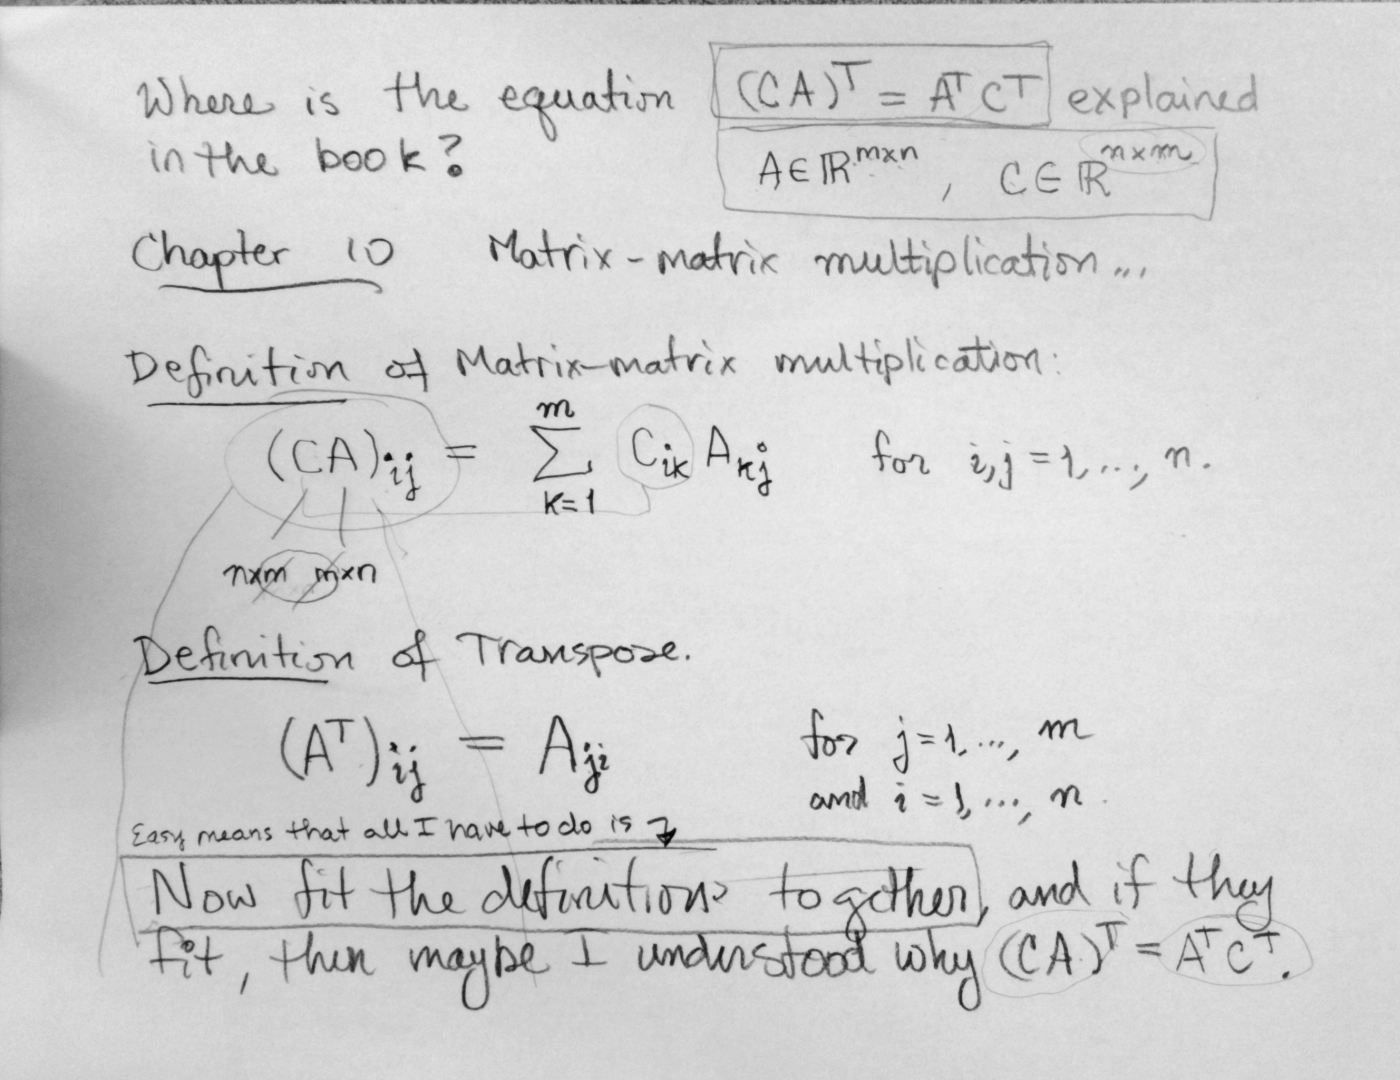 Where is the equation (CA)ᵀ = AᵀCᵀ explained
in the book?
A∈ℝᵐˣⁿ, C∈ℝⁿˣᵐ
Chapter 10 Matrix-matrix multiplication...
Definition of Matrix-matrix multiplication:
(CA)ij = ∑ᵐₖ₌₁ Cik Akj for i,j = 1,..., n.
n×m m×n
Definition of Transpose.
(Aᵀ)ij = Aji for j = 1,..., m
and i = 1,..., n.
Easy means that all I have to do is ↴
Now fit the definitions together, and if they
fit, then maybe I understood why (CA)ᵀ = AᵀCᵀ.